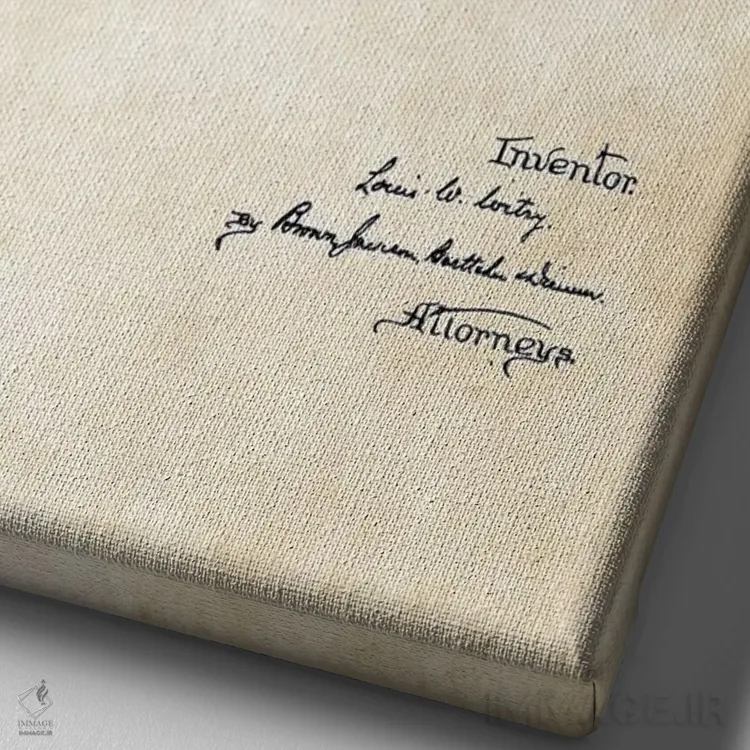 Inventor.
Louis W. Witry.
By Brown, Jackson, Boettcher & Dienner.
Attorneys.
IMMAGE
IMMAGE.IR
IMMAGE.IR